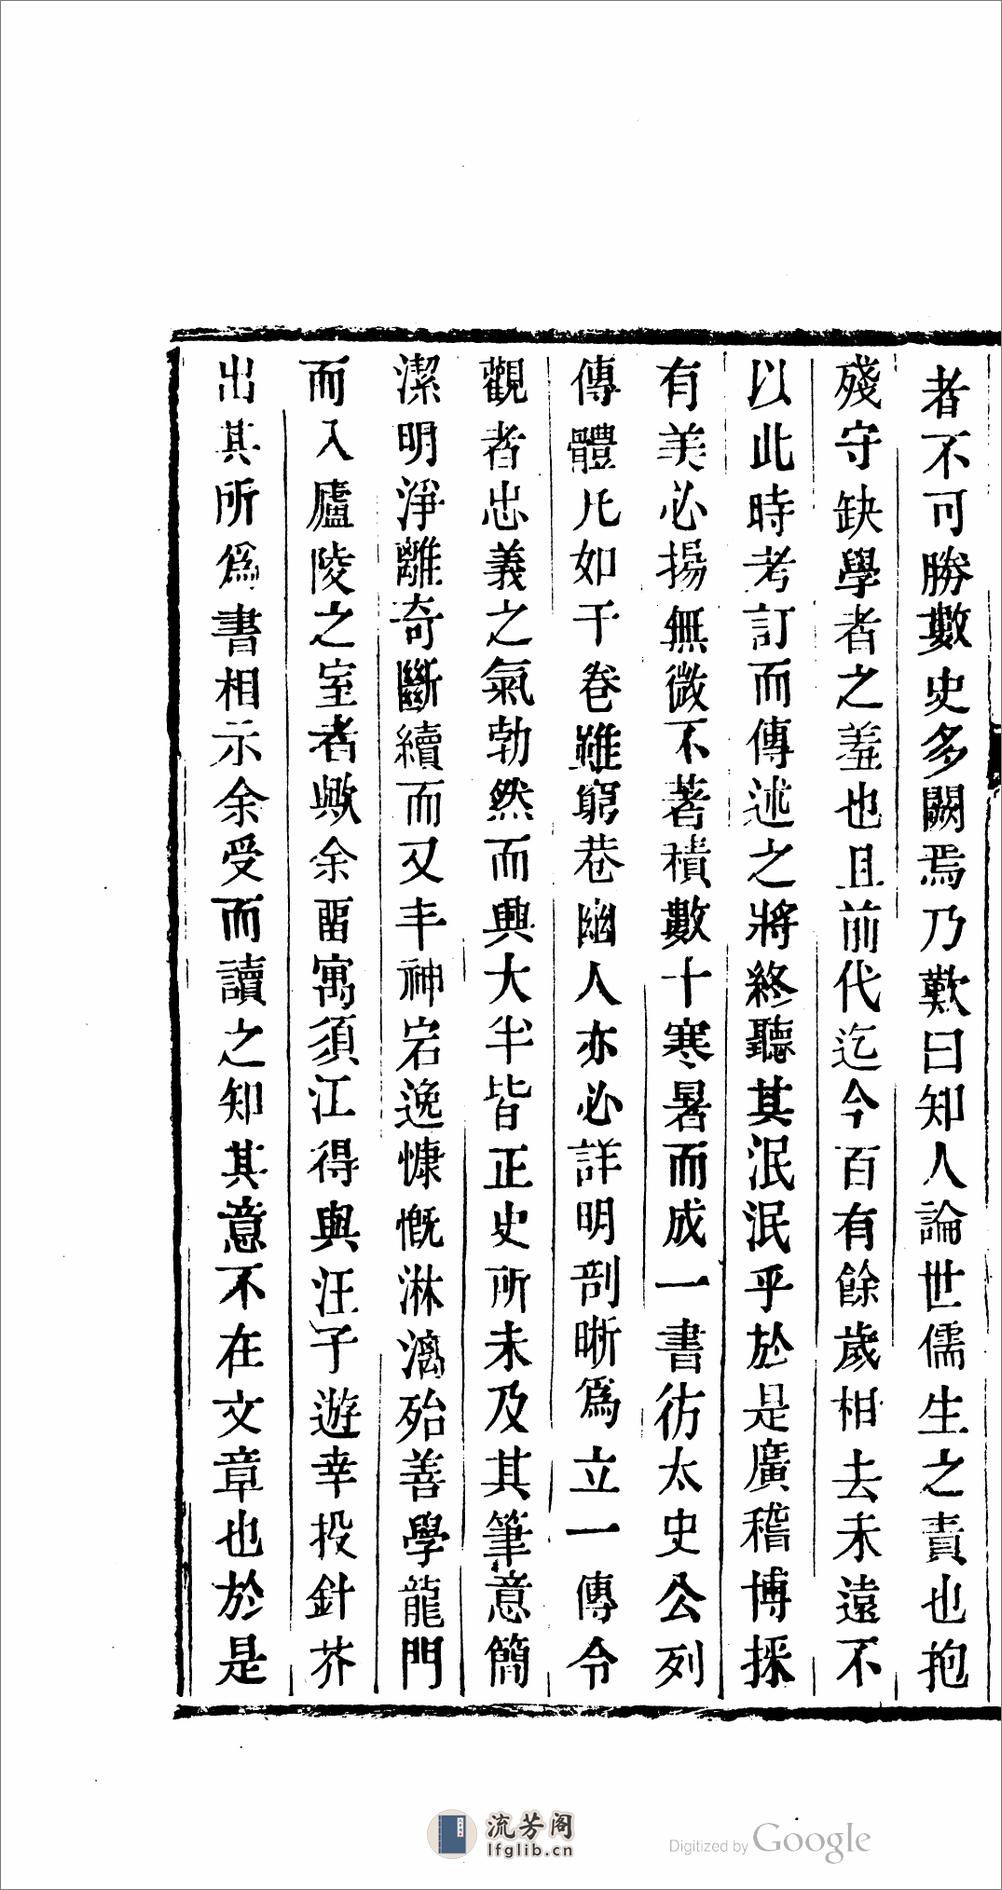 者不可勝數史多闕焉乃歎曰知人論世儒生之責也抱
殘守缺學者之羞也且前代迄今百有餘歲相去未遠不
以此時考訂而傳述之將終聽其泯泯乎於是廣稽博採
有美必揚無微不著積數十寒暑而成一書彷太史公列
傳體凡如干卷雖窮巷幽人亦必詳明剖晰爲立一傳令
觀者忠義之氣勃然而興大半皆正史所未及其筆意簡
潔明淨離奇斷續而又丰神宕逸慷慨淋漓殆善學龍門
而入廬陵之室者歟余畱寓須江得與汪子遊幸投針芥
出其所爲書相示余受而讀之知其意不在文章也於是
流芳阁
lfglib.cn
Digitized by Google